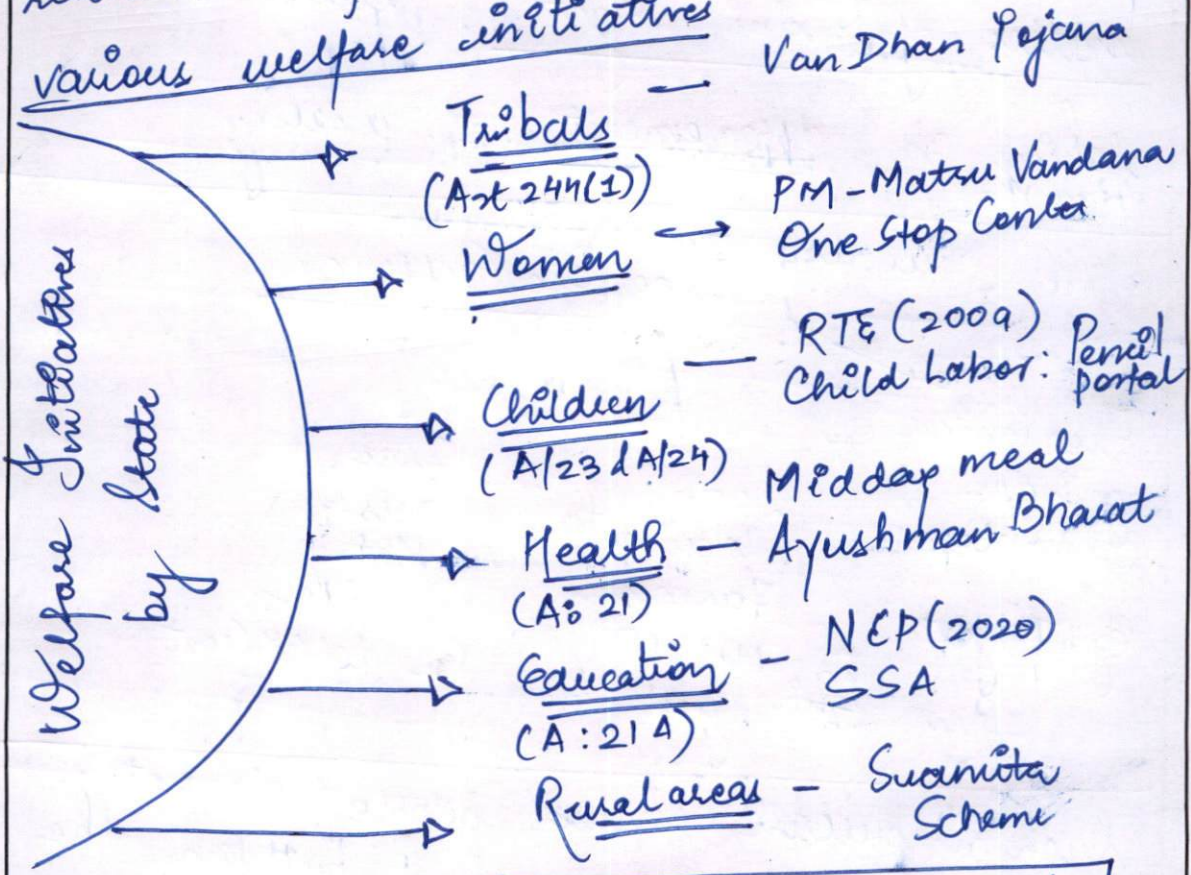 various welfare initiatives
Welfare Initiatives
by State
Tribals — Van Dhan Yojana
(Art 244(1))
Women → PM-Matru Vandana
One Stop Center
Children — RTE (2009)
Child Labor: Pencil
portal
(A/23 & A/24)
Midday meal
Health — Ayushman Bharat
(A: 21)
Education - NEP (2020)
SSA
(A: 21A)
Rural areas - Swamita
Scheme